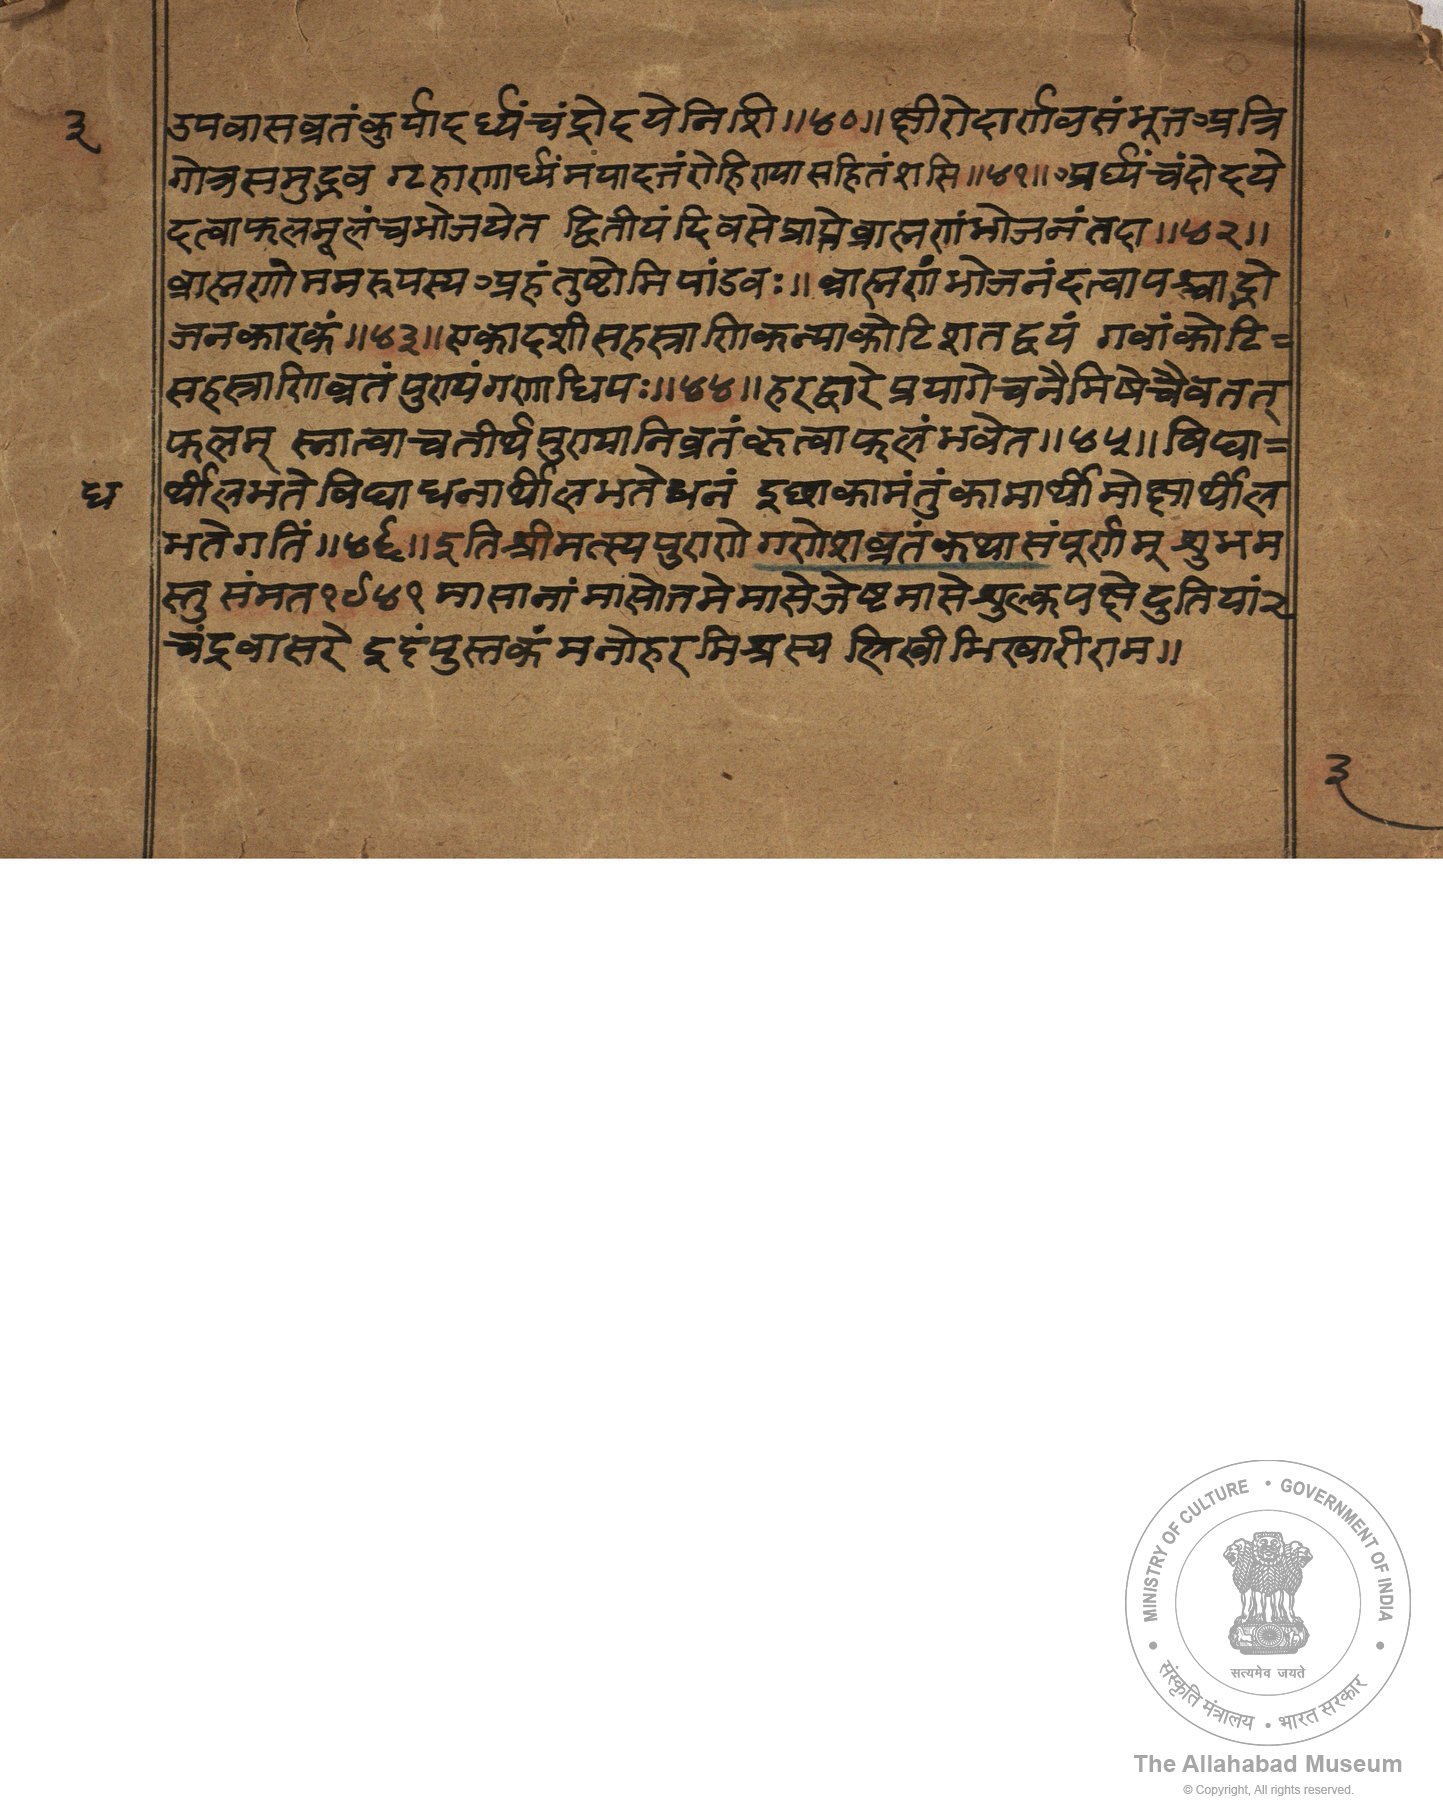 ३
उपवासव्रतंकुर्याद्अर्घ्यंचंद्रोदयेनिशी॥४०॥क्षीरोदार्णवसंभूतअत्रि
गोत्रसमुद्भव गृहाणार्घ्यंमंयादत्तंरोहिण्यासहितंशसि॥४१॥अर्घ्यंचंदोदये
दत्वाफलमूलंचभोजयेत द्वितीयंदिवसेप्राप्तेब्राह्मणांभोजनंतदा॥४२॥
ब्राह्मणोममरूपस्यअहंतुष्टोमिपांडवः॥ब्राह्मणंभोजनंदत्वापश्चाद्भो
जनकारकं॥४३॥एकादशीसहस्त्राणिकन्याकोटिशतद्वयं गवांकोटि=
सहस्त्राणिव्रतंपुण्यंगणाधिपः॥४४॥हरद्वारेप्रयागेचनैमिषेचैवतत्
फलम् स्नात्वाचतीर्थपुण्यानिव्रतंकृत्वाफलंभवेत॥४५॥विद्या=
ध
र्थीलभतेविद्याधनार्थीलभतेधनं इछाकामंतुंकामार्थीमोक्षार्थील
भतेगतिं॥४६॥इतिश्रीमत्स्यपुराणेगणेशव्रतंकथासंपूर्णम् शुभम
स्तु संमत१९४१ मासानांमासोत्तमेमासेजेष्टमासेशुल्कपक्षेदुतियां२
चंद्रवासरे इदंपुस्तकंमनोहरमिश्रस्य लिखीभिखारीराम॥
३
MINISTRY OF CULTURE • GOVERNMENT OF INDIA
सत्यमेव जयते
संस्कृति मंत्रालय • भारत सरकार
The Allahabad Museum
© Copyright, All rights reserved.